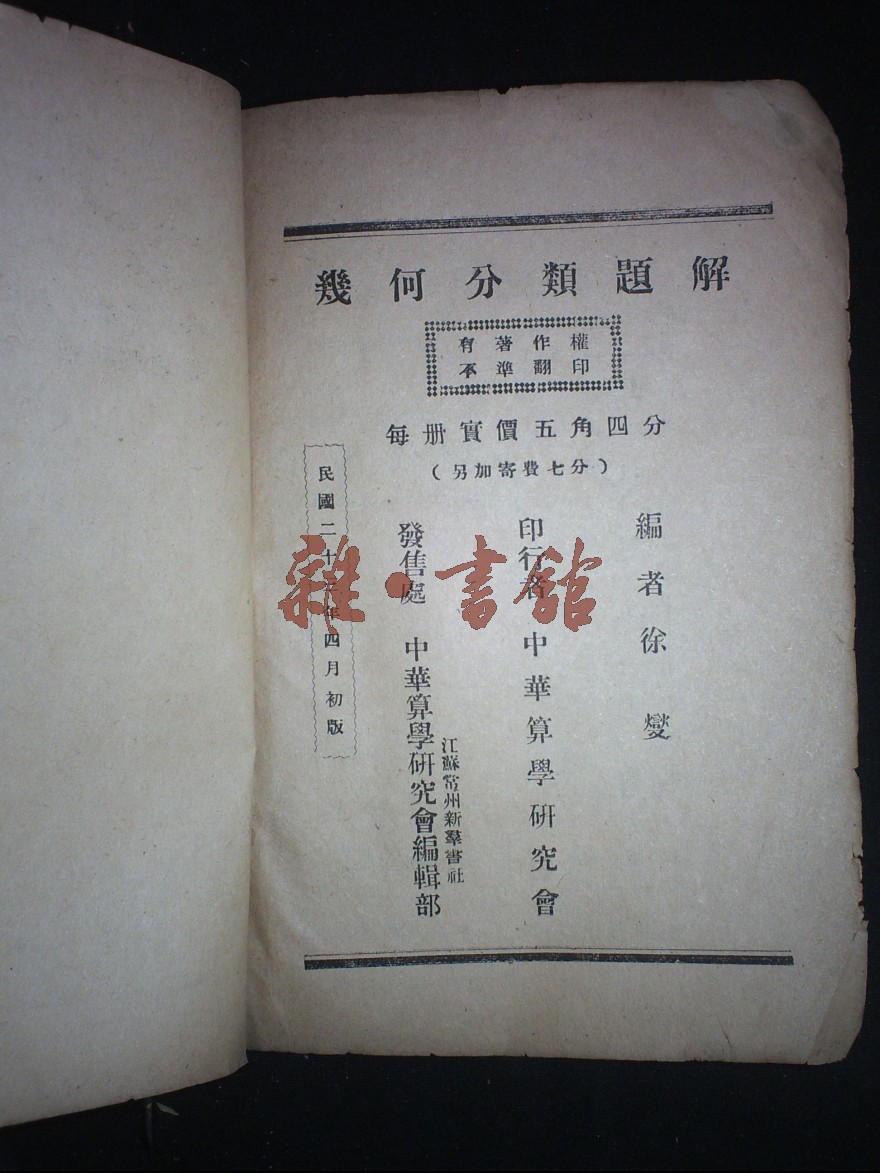 幾何分類題解
有著作權
不準翻印
每册實價五角四分
（另加寄費七分）
編者徐燮
印行者 中華算學研究會
江蘇常州新羣書社
發售處 中華算學研究會編輯部
民國二十 年四月初版
雜·書舘